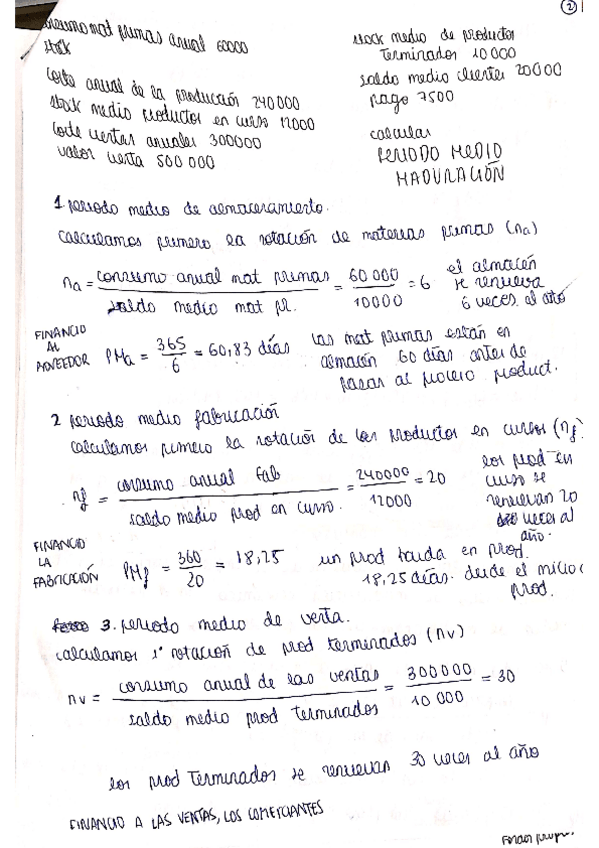 ②
consumo mat primas anual 60000
stock
Coste anual de la producción 240000
stock medio productos en curso 12000
Coste ventas anuales 300000
valor venta 500 000
stock medio de productos
Terminados 10 000
saldo medio clientes 20000
pago 7500
calcular
PERIODO MEDIO
MADURACIÓN
1 periodo medio de almacenamiento.
calculamos primero la rotación de materias primas (na)
na = consumo anual mat primas / saldo medio mat pr. = 60 000 / 10000 = 6 el almacén
se renueva
6 veces el año
FINANCIO
AL
PROVEEDOR PMa = 365 / 6 = 60,83 días las mat primas están en
almacén 60 días antes de
pasar al proceso product.
2 periodo medio fabricación
calculamos primero la rotación de los productos en curso (nf)
nf = consumo anual fab / saldo medio prod en curso. = 240000 / 12000 = 20 los prod en
curso se
renuevan 20
veces al
año.
FINANCIO
LA
FABRICACIÓN PMf = 360 / 20 = 18,25 un prod tarda en prod.
18,25 días. desde el inicio
prod.
3. periodo medio de venta.
calculamos 1º rotación de prod terminados (nv)
nv = consumo anual de las ventas / saldo medio prod terminados = 300 000 / 10 000 = 30
los prod Terminados se renuevan 30 veces al año
FINANCIO A LAS VENTAS, LOS COMERCIANTES